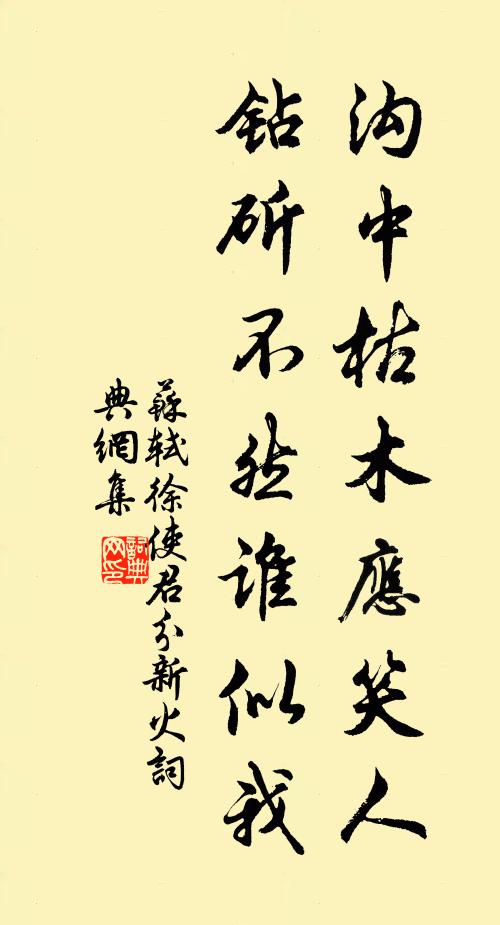 沟中枯木應笑人
钻斫不然誰似我
蘇軾徐使君分新火詞
典網集
詞典网印